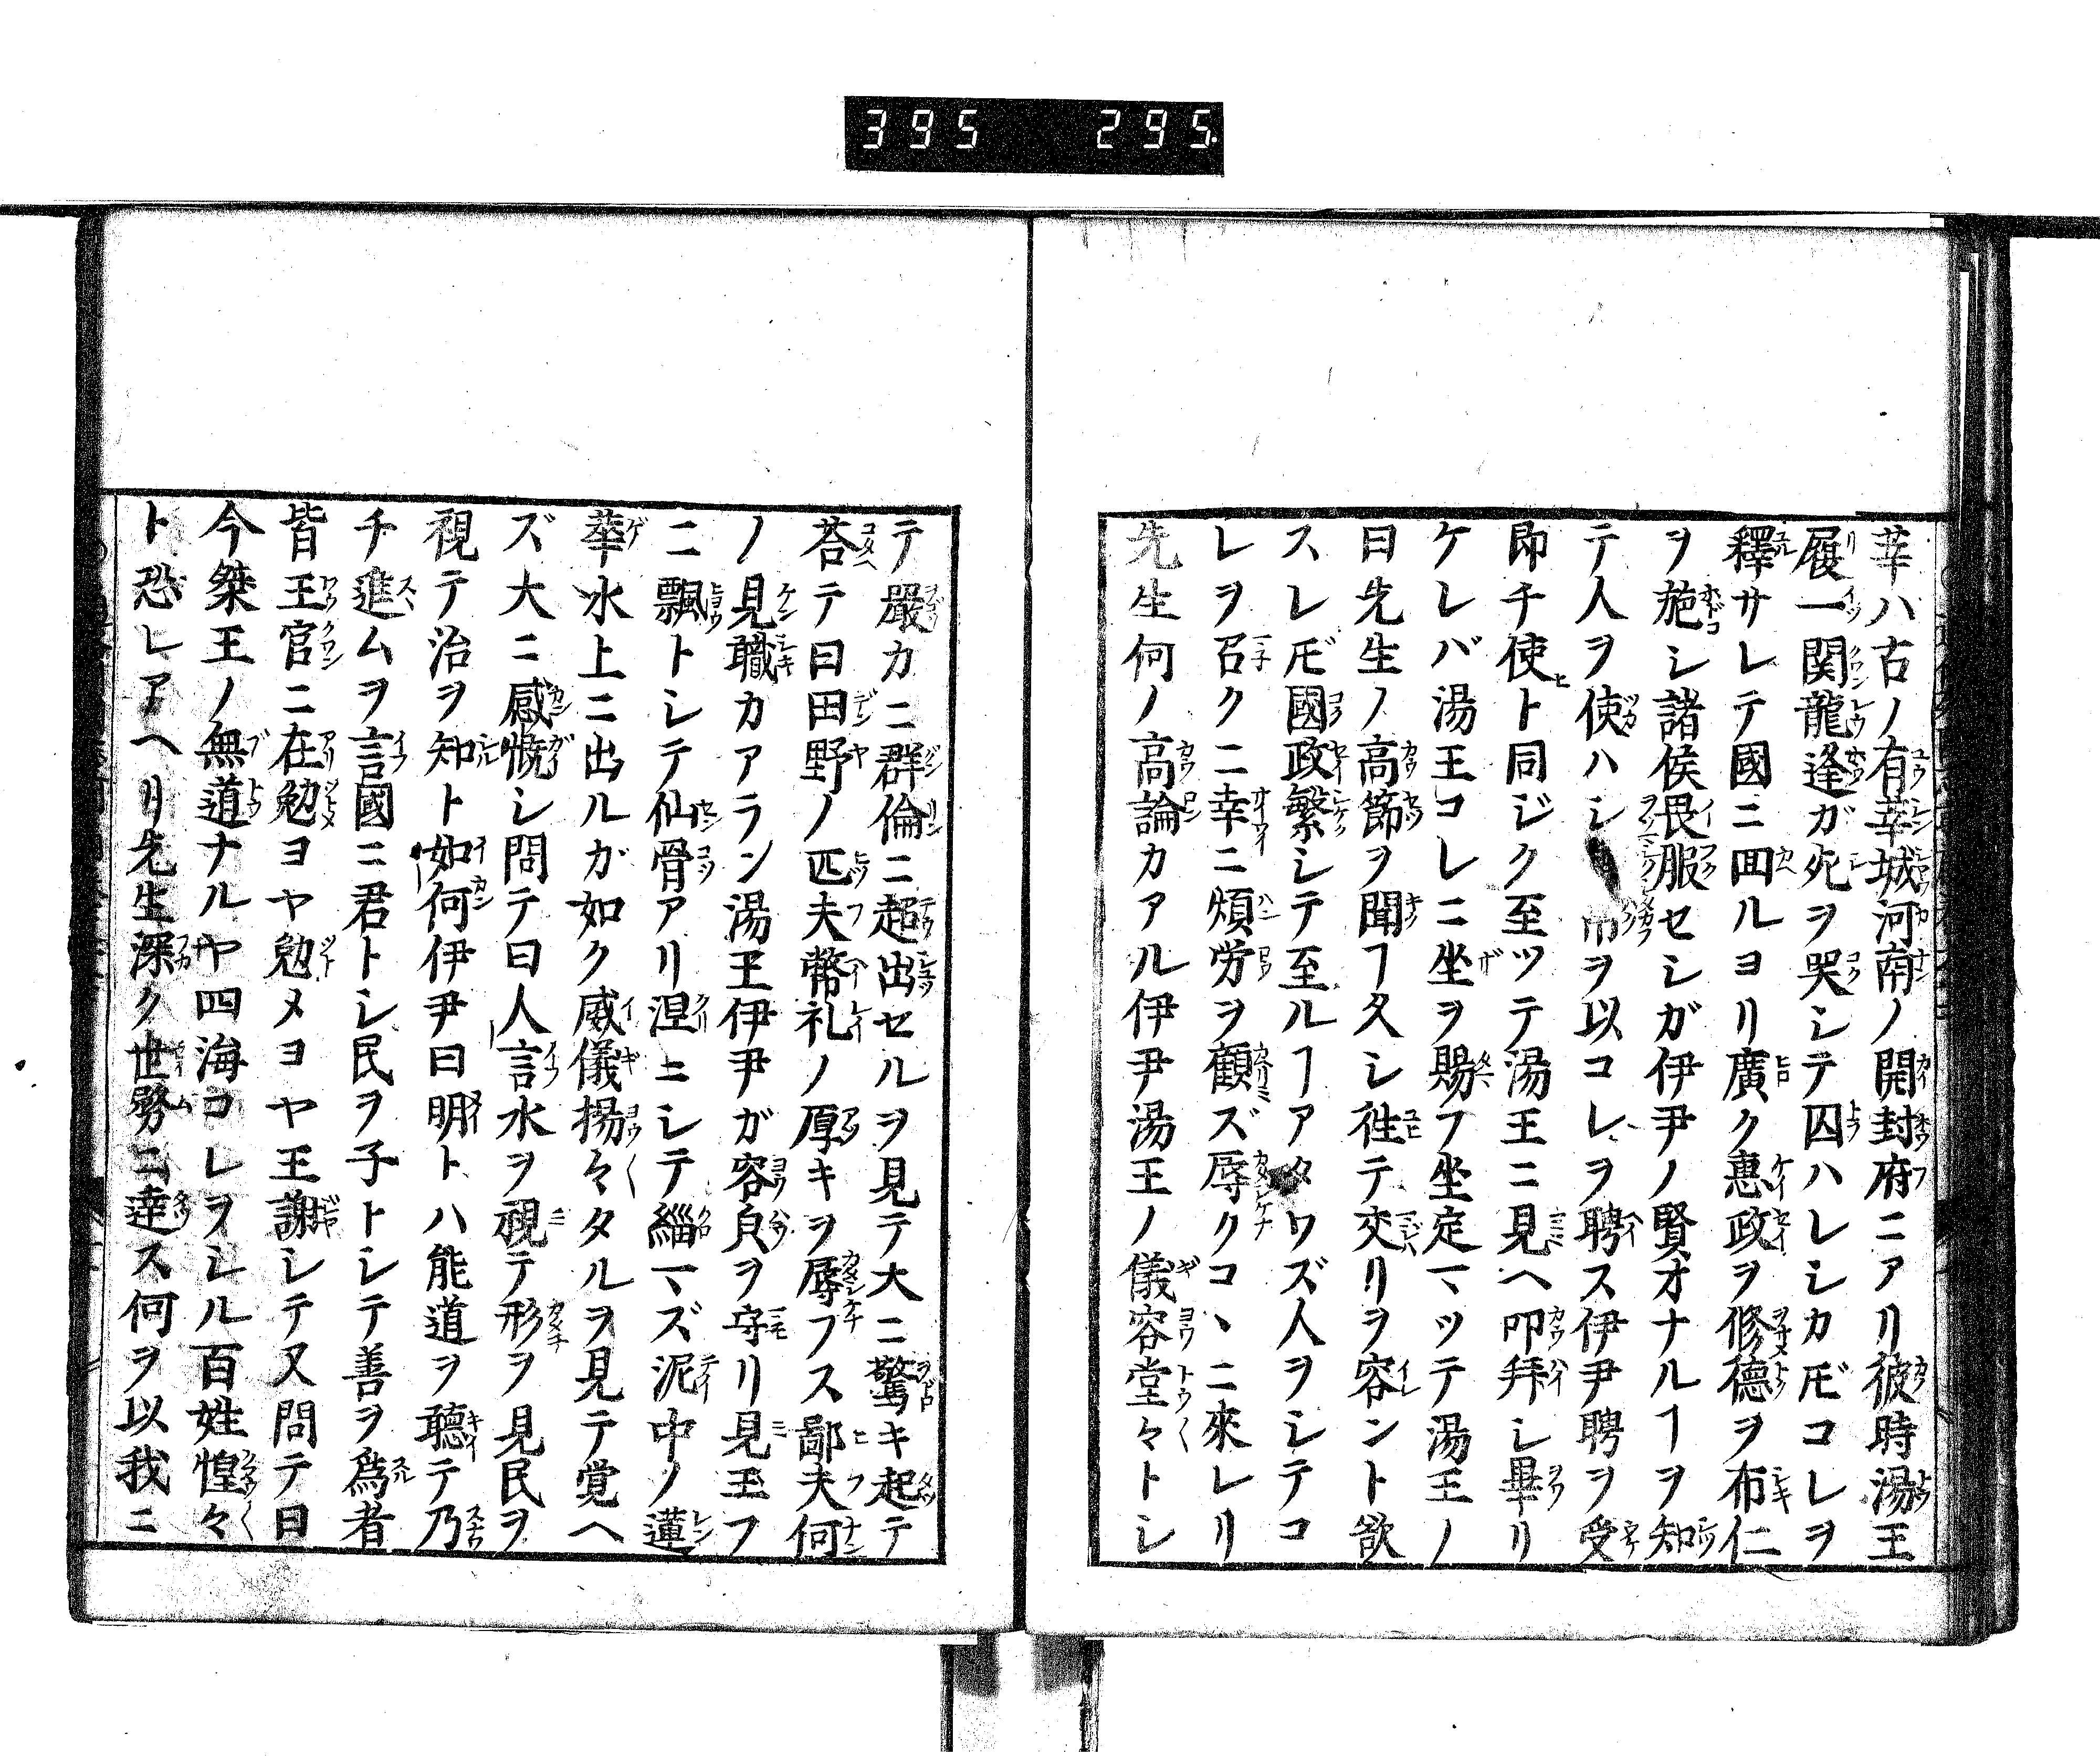 395 295
莘ハ古ノ有莘城河南ノ開封府ニアリ彼時湯王
履一関龍逢ガ死ヲ哭シテ囚ハレシカ𪜈コレヲ
釋サレテ國ニ囬ルヨリ廣ク惠政ヲ修德ヲ布仁
ヲ施シ諸侯畏服セシガ伊尹ノ賢才ナルヿヲ知
テ人ヲ使ハシ帛ヲ以コレヲ聘ス伊尹聘ヲ受
即チ使ト同ジク至ツテ湯王ニ見ヘ叩拜シ畢リ
ケレバ湯王コレニ坐ヲ賜フ坐定マツテ湯王ノ
曰先生ノ高節ヲ聞ヿ久シ徃テ交リヲ容ント欲
スレ𪜈國政繁シテ至ルヿアタワズ人ヲシテコ
レヲ召クニ幸ニ煩労ヲ顧ズ辱クコヽニ來レリ
先生何ノ高論カアル伊尹湯王ノ儀容堂々トシ
テ嚴カニ群倫ニ超出セルヲ見テ大ニ驚キ起テ
荅テ曰田野ノ匹夫幣礼ノ厚キヲ辱フス鄙夫何
ノ見職カアラン湯王伊尹ガ容皃ヲ守リ見玉フ
ニ飄トシテ仙骨アリ涅ニシテ緇マズ泥中ノ蓮
華水上ニ出ルガ如ク威儀揚々タルヲ見テ覚ヘ
ズ大ニ感慨シ問テ曰人言水ヲ視テ形ヲ見民ヲ
視テ治ヲ知ト如何伊尹曰明トハ能道ヲ聴テ乃
チ進ムヲ言國ニ君トシ民ヲ子トシテ善ヲ爲者
皆王官ニ在勉ヨヤ勉メヨヤ王謝シテ又問テ曰
今桀王ノ無道ナルヤ四海コレヲシル百姓惶々
ト恐レアヘリ先生深ク世務ニ達ス何ヲ以我ニ